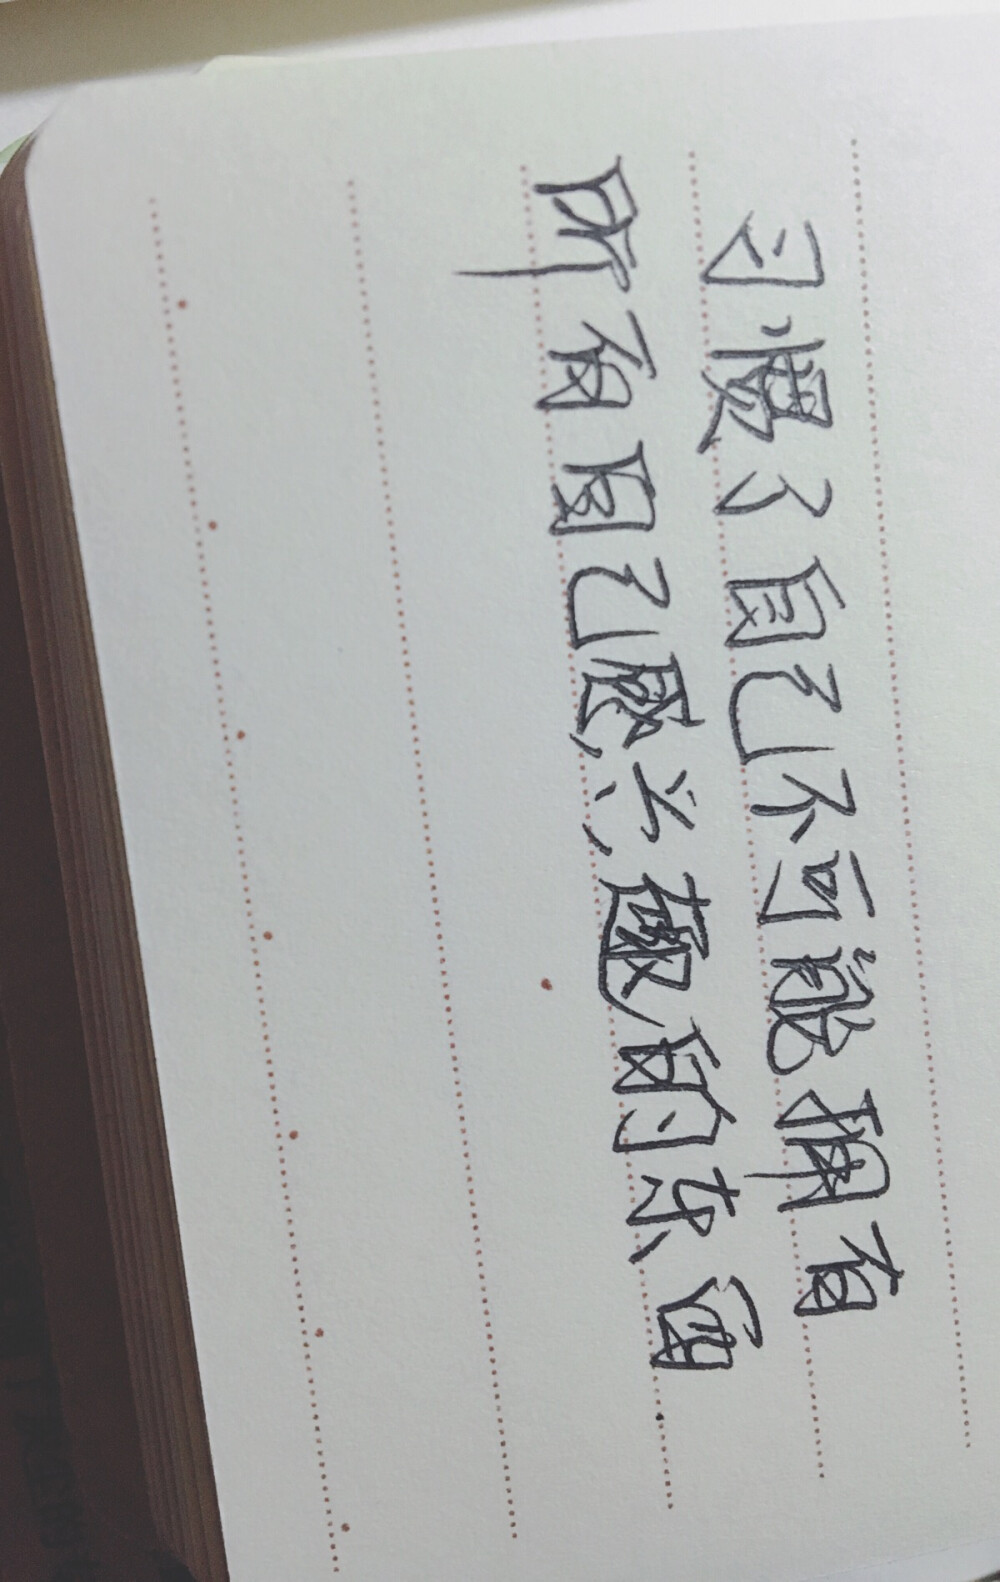 习惯了自己不可能拥有
所有自己感兴趣的东西